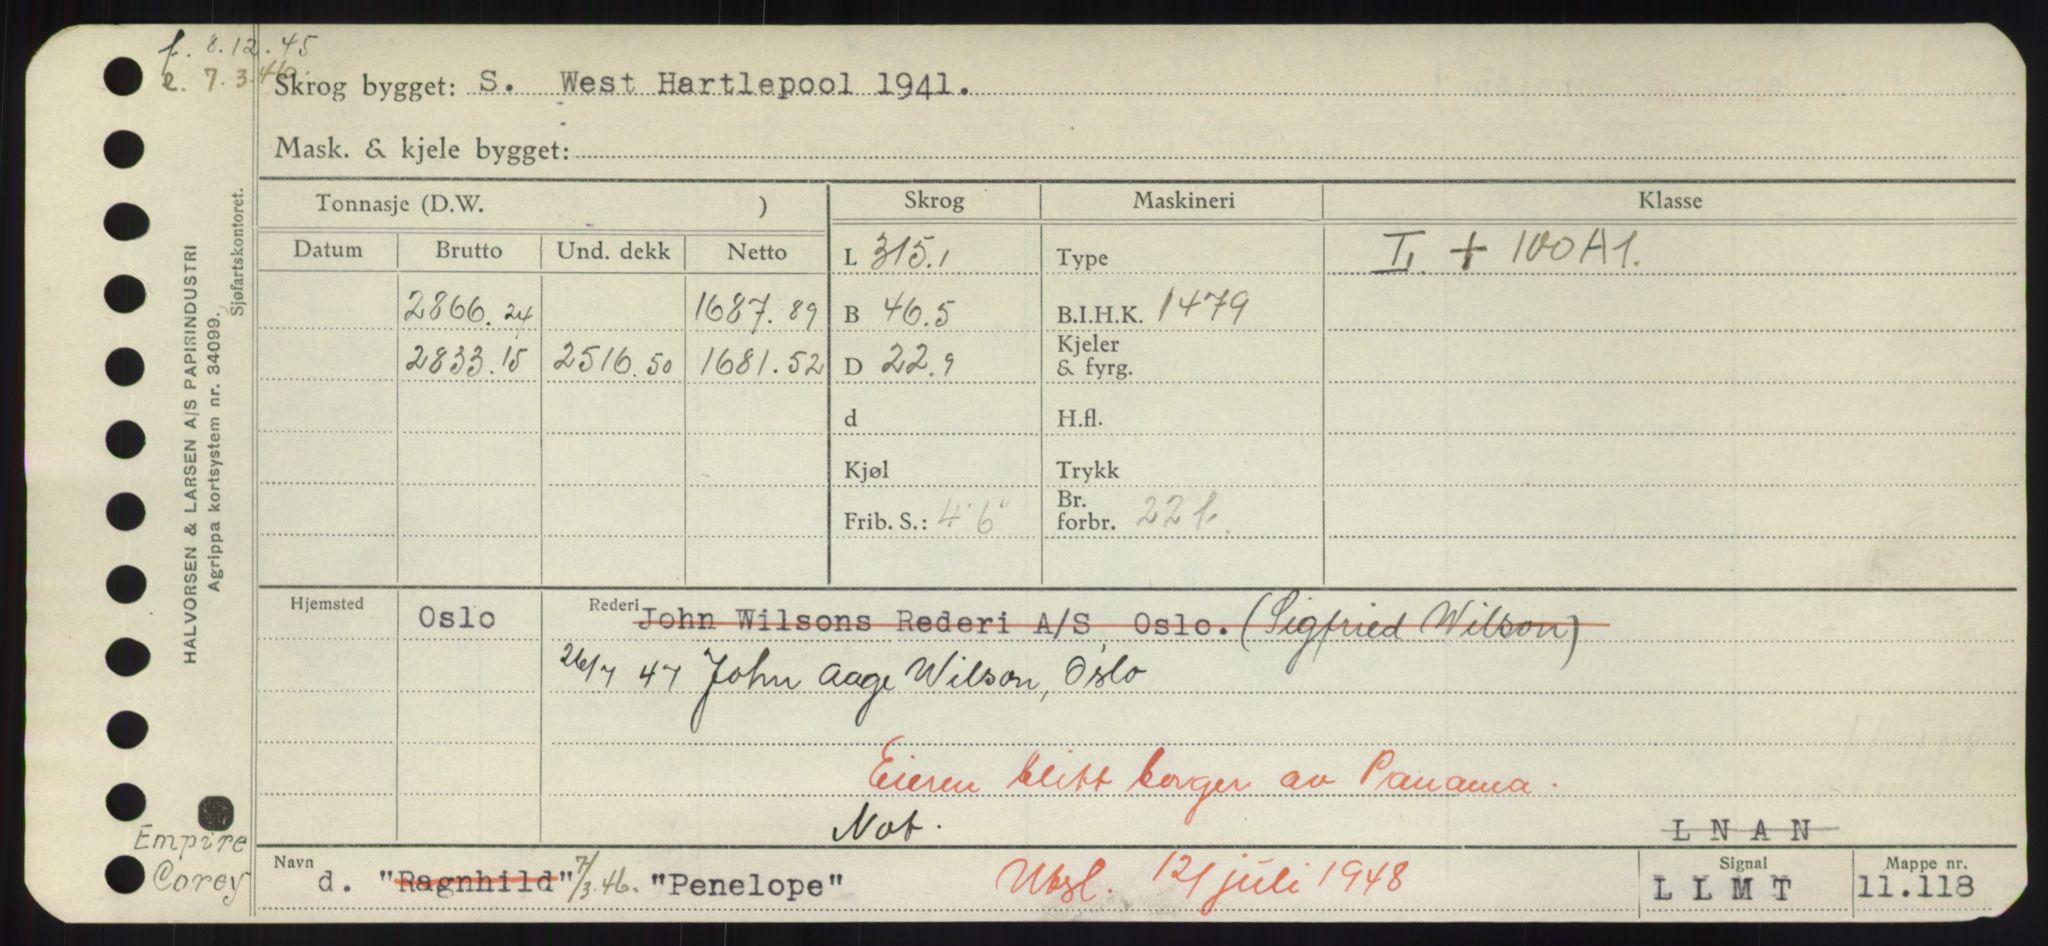 f. 8.12.45
e. 7.3.46.
Skrog bygget: S. West Hartlepool 1941.
Mask. & kjele bygget:
Tonnasje (D.W. )
Skrog
Maskineri
Klasse
Datum Brutto Und. dekk Netto
L 315.1
Type
I, + 100A1.
2866.24 1687.89
B 46.5
B.I.H.K. 1479
2833.15 2516.50 1681.52
D 22.9
Kjeler
& fyrg.
d
H.fl.
Kjøl
Trykk
Frib. S.: 4'6"
Br.
forbr. 22 t.
HALVORSEN & LARSEN A/S PAPIRINDUSTRI
Agrippa kortsystem nr. 34099.
Sjøfartskontoret.
Hjemsted Oslo Rederi John Wilsons Rederi A/S Oslo. (Sigfried Wilson)
26/7 47 John Aage Wilson, Oslo
Eieren blitt borger av Panama.
Not.
L N A N
Empire
Corey
Navn d. "Ragnhild" 7/3.46. "Penelope" Utsl. 12/juli 1948
Signal
L L M T
Mappe nr.
11.118